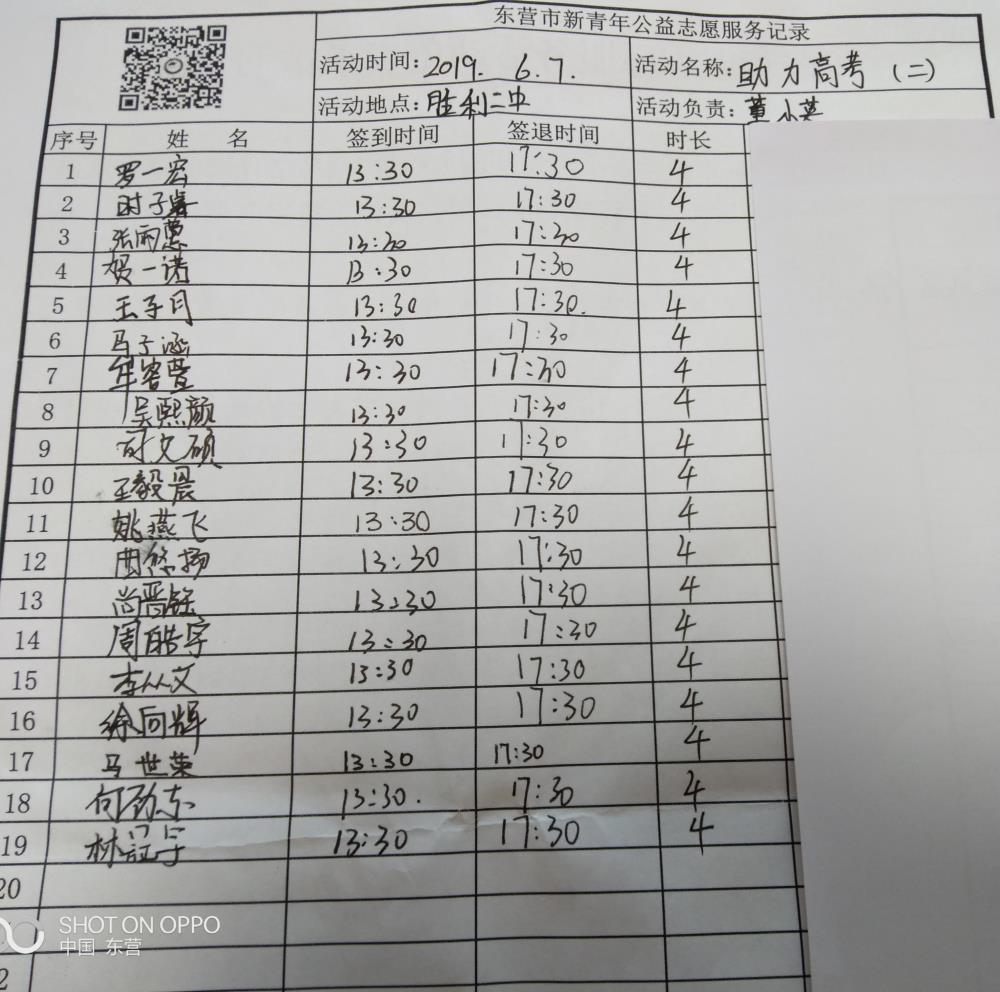 东营市新青年公益志愿服务记录
活动时间: 2019. 6.7. 活动名称: 助力高考 (二)
活动地点: 胜利二中 活动负责: 董小英
序号 姓 名 签到时间 签退时间 时长
1 罗一宏 13:30 17:30 4
2 时子睿 13:30 17:30 4
3 张雨慧 13:30 17:30 4
4 贺一诺 13:30 17:30 4
5 王子月 13:30 17:30. 4
6 马于涵 13:30 17:30 4
7 13:30 17:30 4
8 吴熙颜 13:30 17:30 4
9 文硕 13:30 17:30 4
10 王毅晨 13:30 17:30 4
11 姚燕飞 13:30 17:30 4
12 周悠扬 13:30 17:30 4
13 尚晋钰 13:30 17:30 4
14 周皓宇 13:30 17:30 4
15 李从文 13:30 17:30 4
16 徐向辉 13:30 17:30 4
17 马世荣 13:30 17:30 4
18 何 13:30. 17:30 4
19 林 13:30 17:30 4
20
SHOT ON OPPO
中国 东营
2